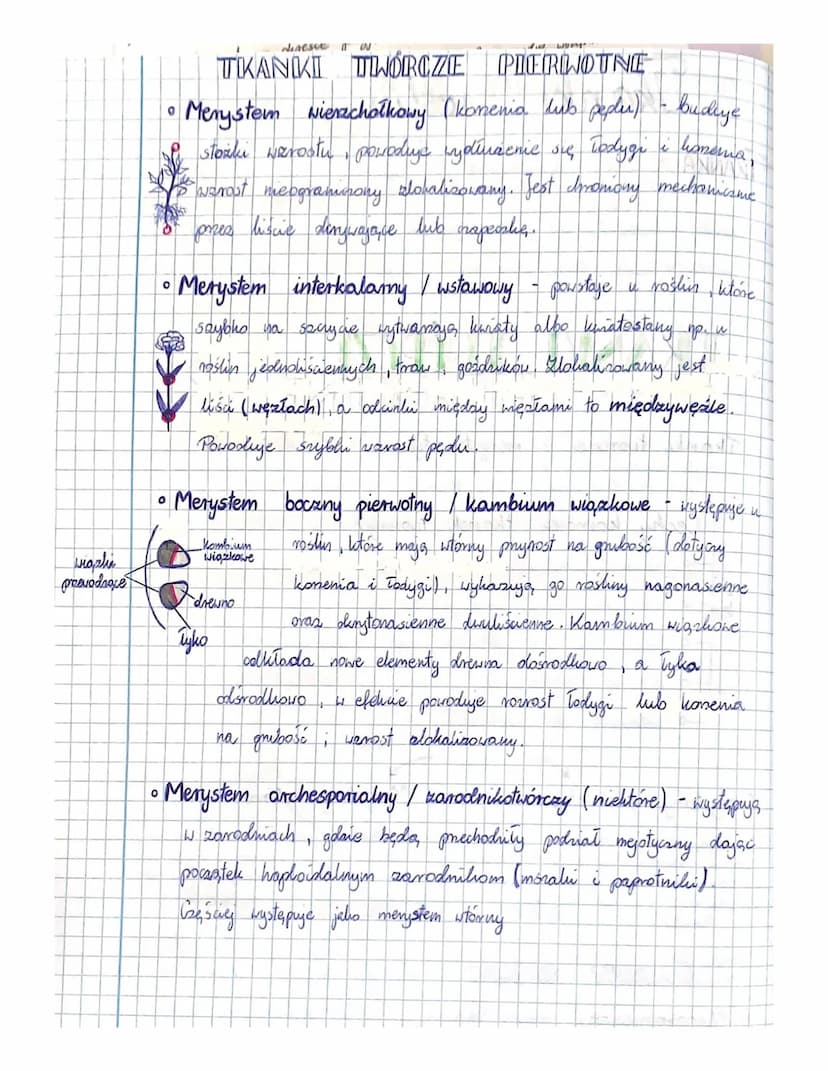 TKANKI TWÓRCZE PIERWOTNE
• Merystem wierzchołkowy (korzenia lub pędu) - buduje
stożki wzrostu, powoduje wydłużenie się łodygi i korzenia,
wzrost nieograniczony zlokalizowany. Jest chroniony mechanicznie
przez liście okrywające lub czapeczkę.
• Merystem interkalarny / wstawowy - powstaje u roślin, które
szybko na szczycie wytwarzają kwiaty albo kwiatostany np. u
roślin jednoliściennych, traw, goździków. Zlokalizowany jest
liści (węzłach), a odcinki między węzłami to międzywęźle.
Powoduje szybki wzrost pędu.
• Merystem boczny pierwotny / kambium wiązkowe - występuje u
roślin, które mają wtórny przyrost na grubość (dotyczy
korzenia i łodygi), wykazują go rośliny nagonasienne
oraz okrytonasienne dwuliścienne. Kambium wiązkowe
odkłada nowe elementy drewna dośrodkowo, a łyka
odśrodkowo, w efekcie powoduje rozrost łodygi lub korzenia
na grubość; wzrost zlokalizowany.
wiązki
przewodzące
kambium
wiązkowe
drewno
łyko
• Merystem archesporialny / zarodnikotwórczy (niektóre) - występują
w zarodniach, gdzie będą przechodziły podział mejotyczny dając
początek haploidalnym zarodnikom (mszaki i paprotniki).
Częściej występuje jako merystem wtórny